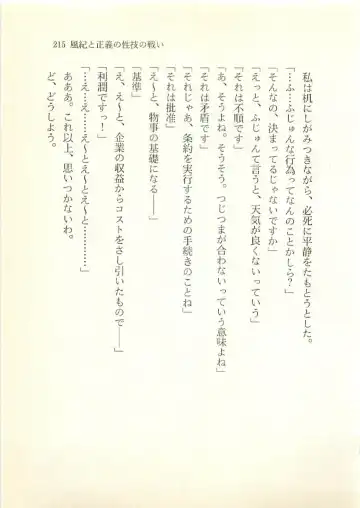 215 風紀と正義の性技の戦い
私は机にしがみつきながら、必死に平静をたもとうとした。
「…ふ…ふじゅんな行為ってなんのことかしら?」
「そんなの、決まってるじゃないですか」
「えっと、ふじゅんて言うと、天気が良くないっていう」
「それは不順です」
「あ、そうよね。そうそう。つじつまが合わないっていう意味よね」
「それは矛盾です」
「それじゃあ、条約を実行するための手続きのことね」
「それは批准」
「え〜と、物事の基礎になる――」
「基準」
「え、え〜と、企業の収益からコストをさし引いたもので――」
「利潤ですっ!」
「……え……え……え〜とえ〜とえ〜と…………」
あああ。これ以上、思いつかないわ。
ど、どうしよう。